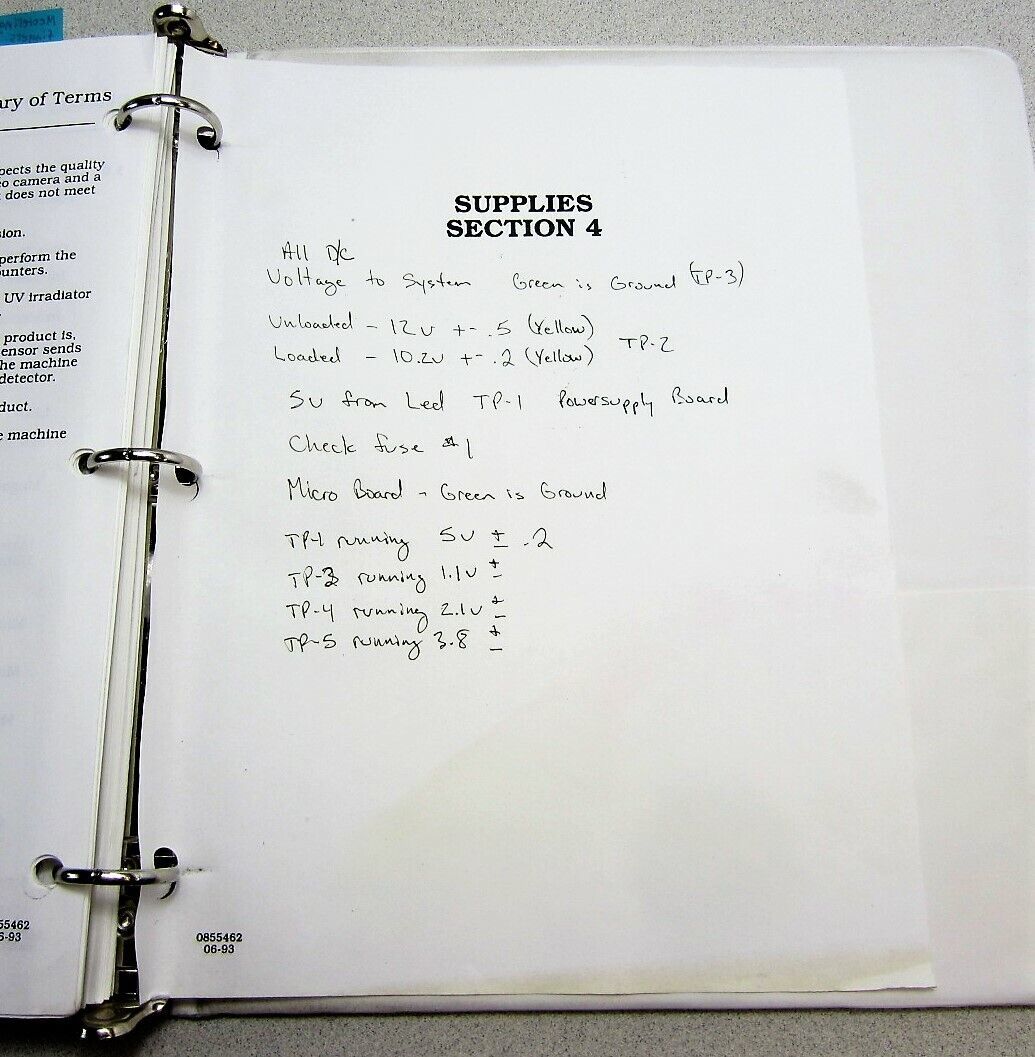 ary of Terms
pects the quality
eo camera and a
does not meet
sion.
perform the
unters.
UV irradiator
product is,
ensor sends
he machine
detector.
duct.
e machine
55462
6-93
SUPPLIES
SECTION 4
All D/C
Voltage to System Green is Ground (TP-3)
Unloaded - 12v +- .5 (Yellow)
TP-2
Loaded - 10.2v +- .2 (Yellow)
5v from Led TP-1 Powersupply Board
Check fuse #1
Micro Board - Green is Ground
TP-1 running 5v ± .2
TP-3 running 1.1v ±
TP-4 running 2.1v ±
TP-5 running 3.8 ±
0855462
06-93